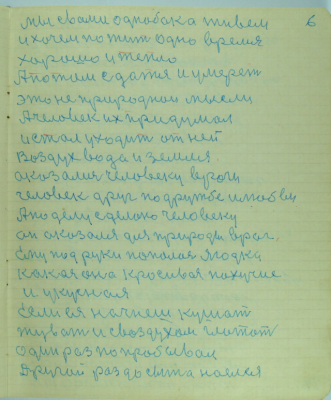 6
мы с вами однобака живем
и хочем пожит одно время
хорошо и тепло
А потом сдатя и умерет
это не природном мысли
А человек их придумал
и стал уходит от ней
Воздух вода и земля
оказался человеку враги
человек друг по дружбе и любви
А по делу сделано человеку
он оказался для природы враг.
Ему под руки попалоя ягодка
какая она красивая пахучие
и укусная
Если ея начнеш кушат
жуват и своздухом глотат
один раз попробывал
Другой раз досыта наелся